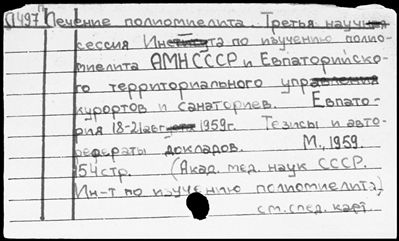 П497 Лечение полиомиелита. Третья научная
сессия Института по изучению полио-
миелита АМН СССР и Евпаторийско-
го территориального управления
курортов и санаториев. Евпато-
рия 18-21 авг. 1959г. Тезисы и авто-
рефераты докладов. М., 1959.
54 стр. (Акад. мед. наук СССР.
Ин-т по изучению полиомиелита)
см. след. карт.